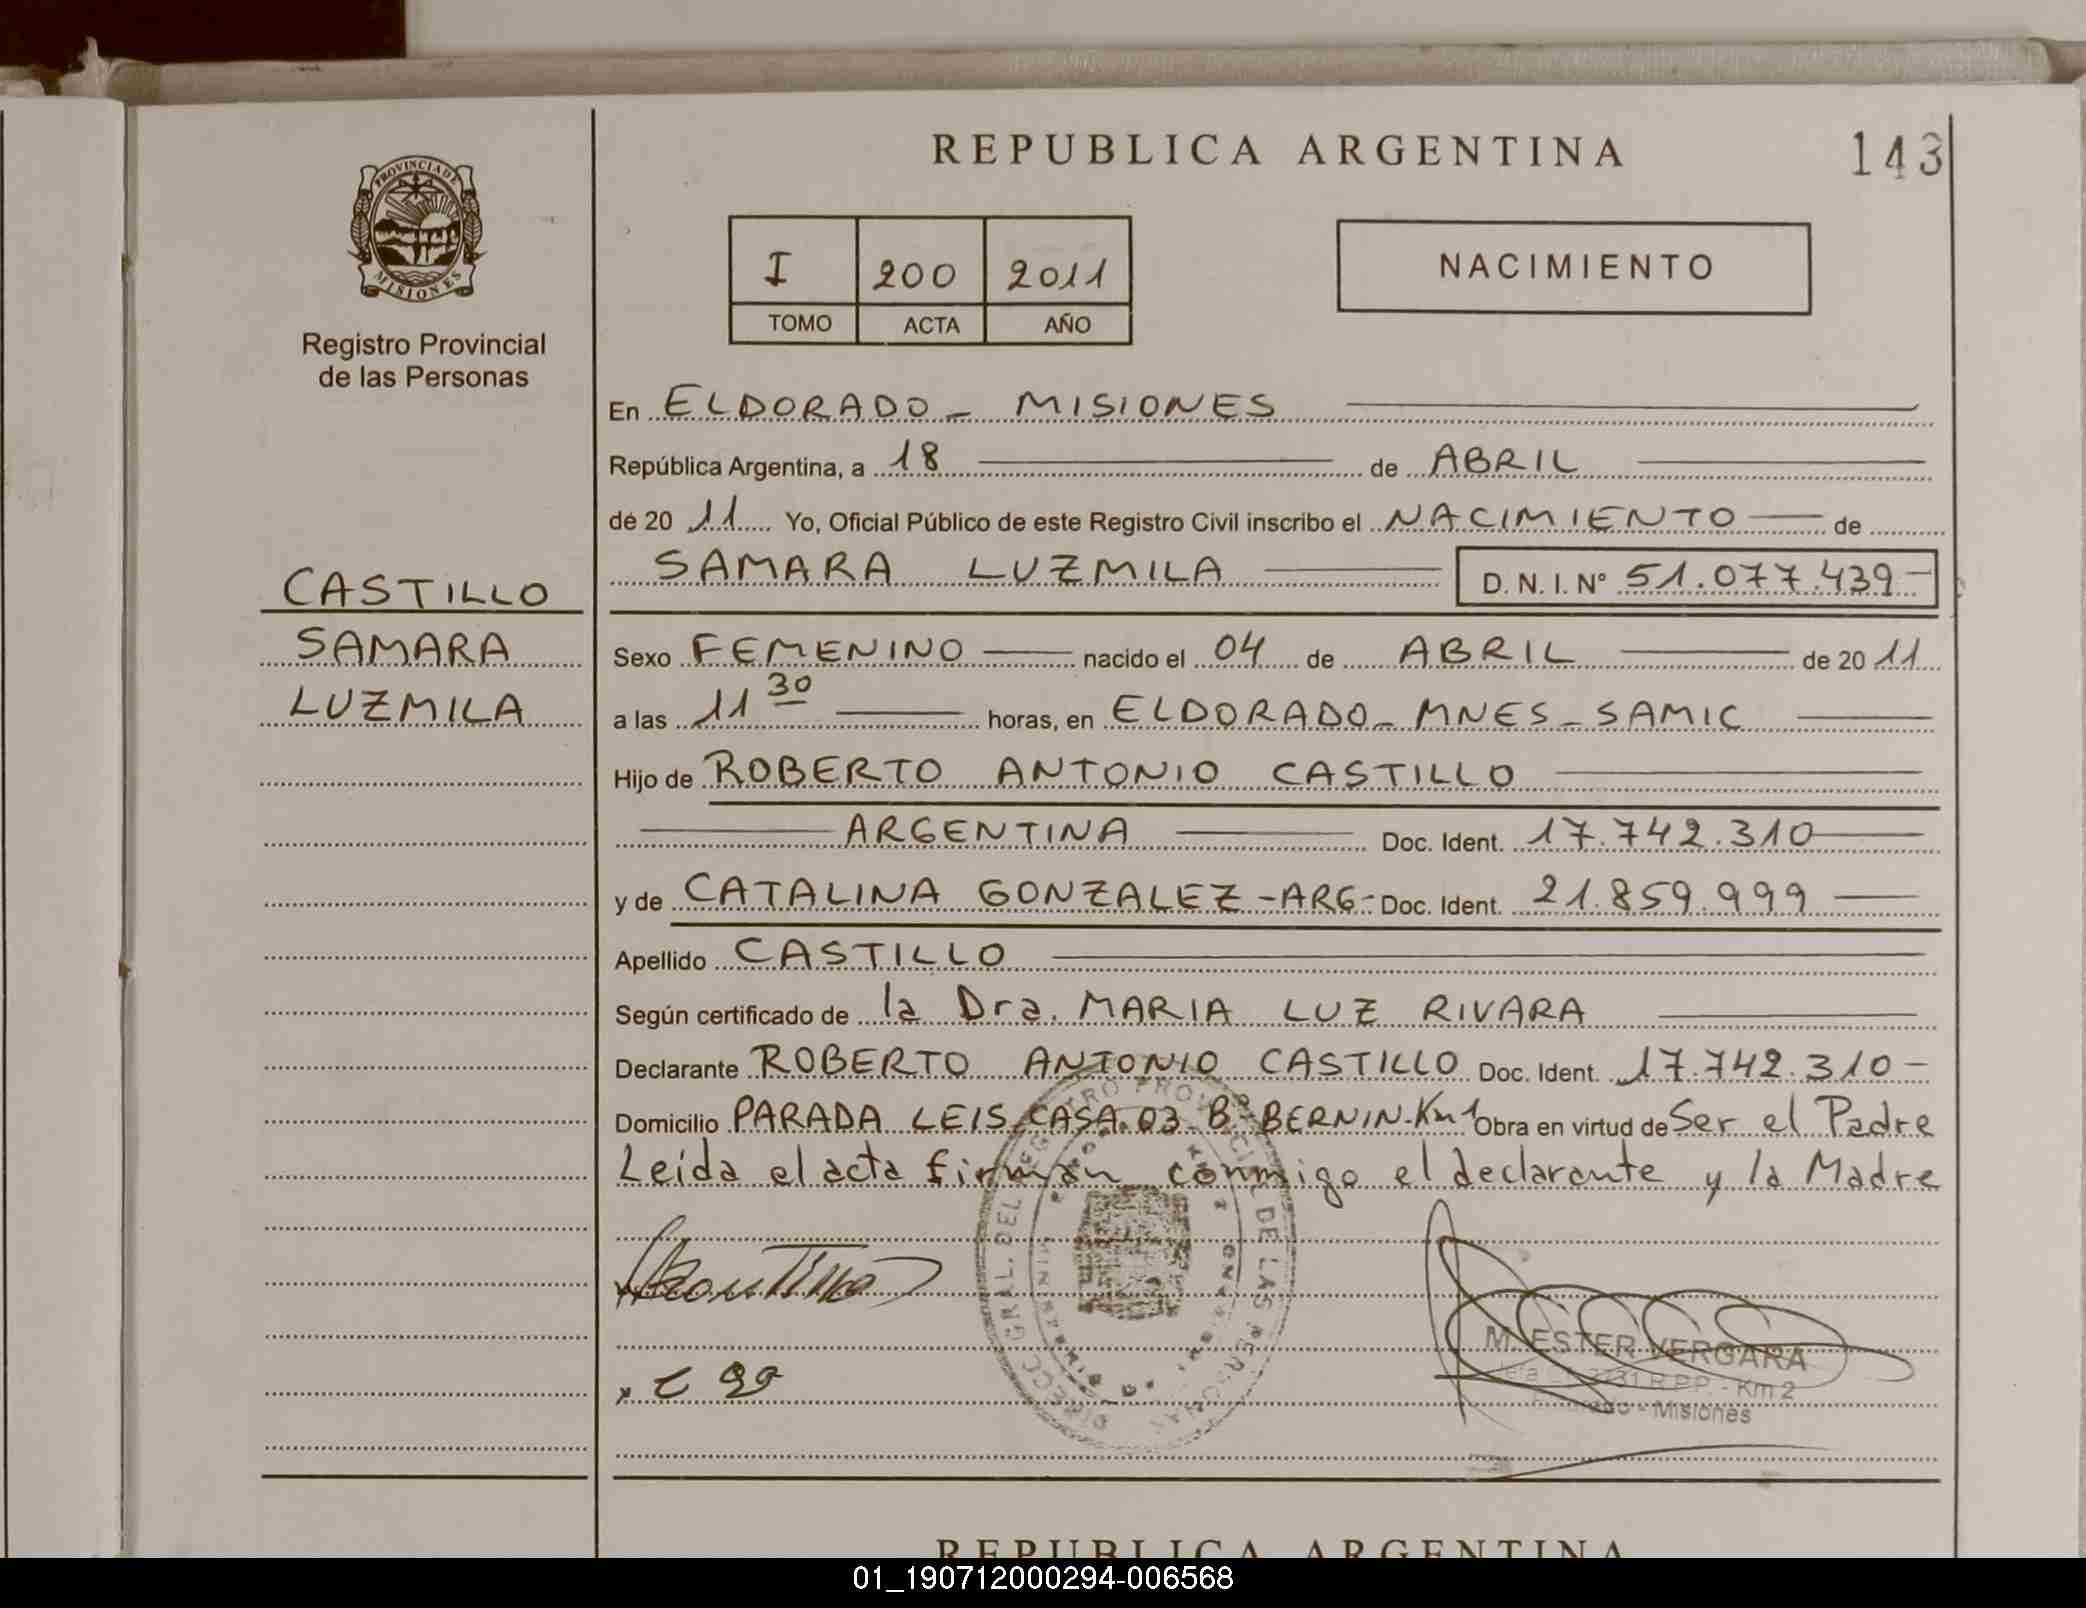 REPUBLICA ARGENTINA
143
PROVINCIA DE
MISIONES
Registro Provincial
de las Personas
I 200 2011
TOMO ACTA AÑO
NACIMIENTO
En ELDORADO - MISIONES
República Argentina, a 18 de ABRIL
de 20 11 Yo, Oficial Público de este Registro Civil inscribo el NACIMIENTO de
SAMARA LUZMILA D. N. I. N° 51.077.439-
CASTILLO
SAMARA
LUZMILA
Sexo FEMENINO nacido el 04 de ABRIL de 20 11
a las 11 30 horas, en ELDORADO - MNES - SAMIC
Hijo de ROBERTO ANTONIO CASTILLO
ARGENTINA Doc. Ident. 17.742.310
y de CATALINA GONZALEZ -ARG- Doc. Ident. 21.859.999
Apellido CASTILLO
Según certificado de la Dra. MARIA LUZ RIVARA
Declarante ROBERTO ANTONIO CASTILLO Doc. Ident. 17.742.310-
Domicilio PARADA LEIS CASA 03 Bº BERNIN-Km 1 Obra en virtud de Ser el Padre
Leida el acta firman conmigo el declarante y la Madre
DIRECC. GRAL. DEL REGISTRO PROVINCIAL DE LAS PERSONAS
M. ESTER VERGARA
R.P.P. - Km 2
- Misiones
REPUBLICA ARGENTINA
01_190712000294-006568